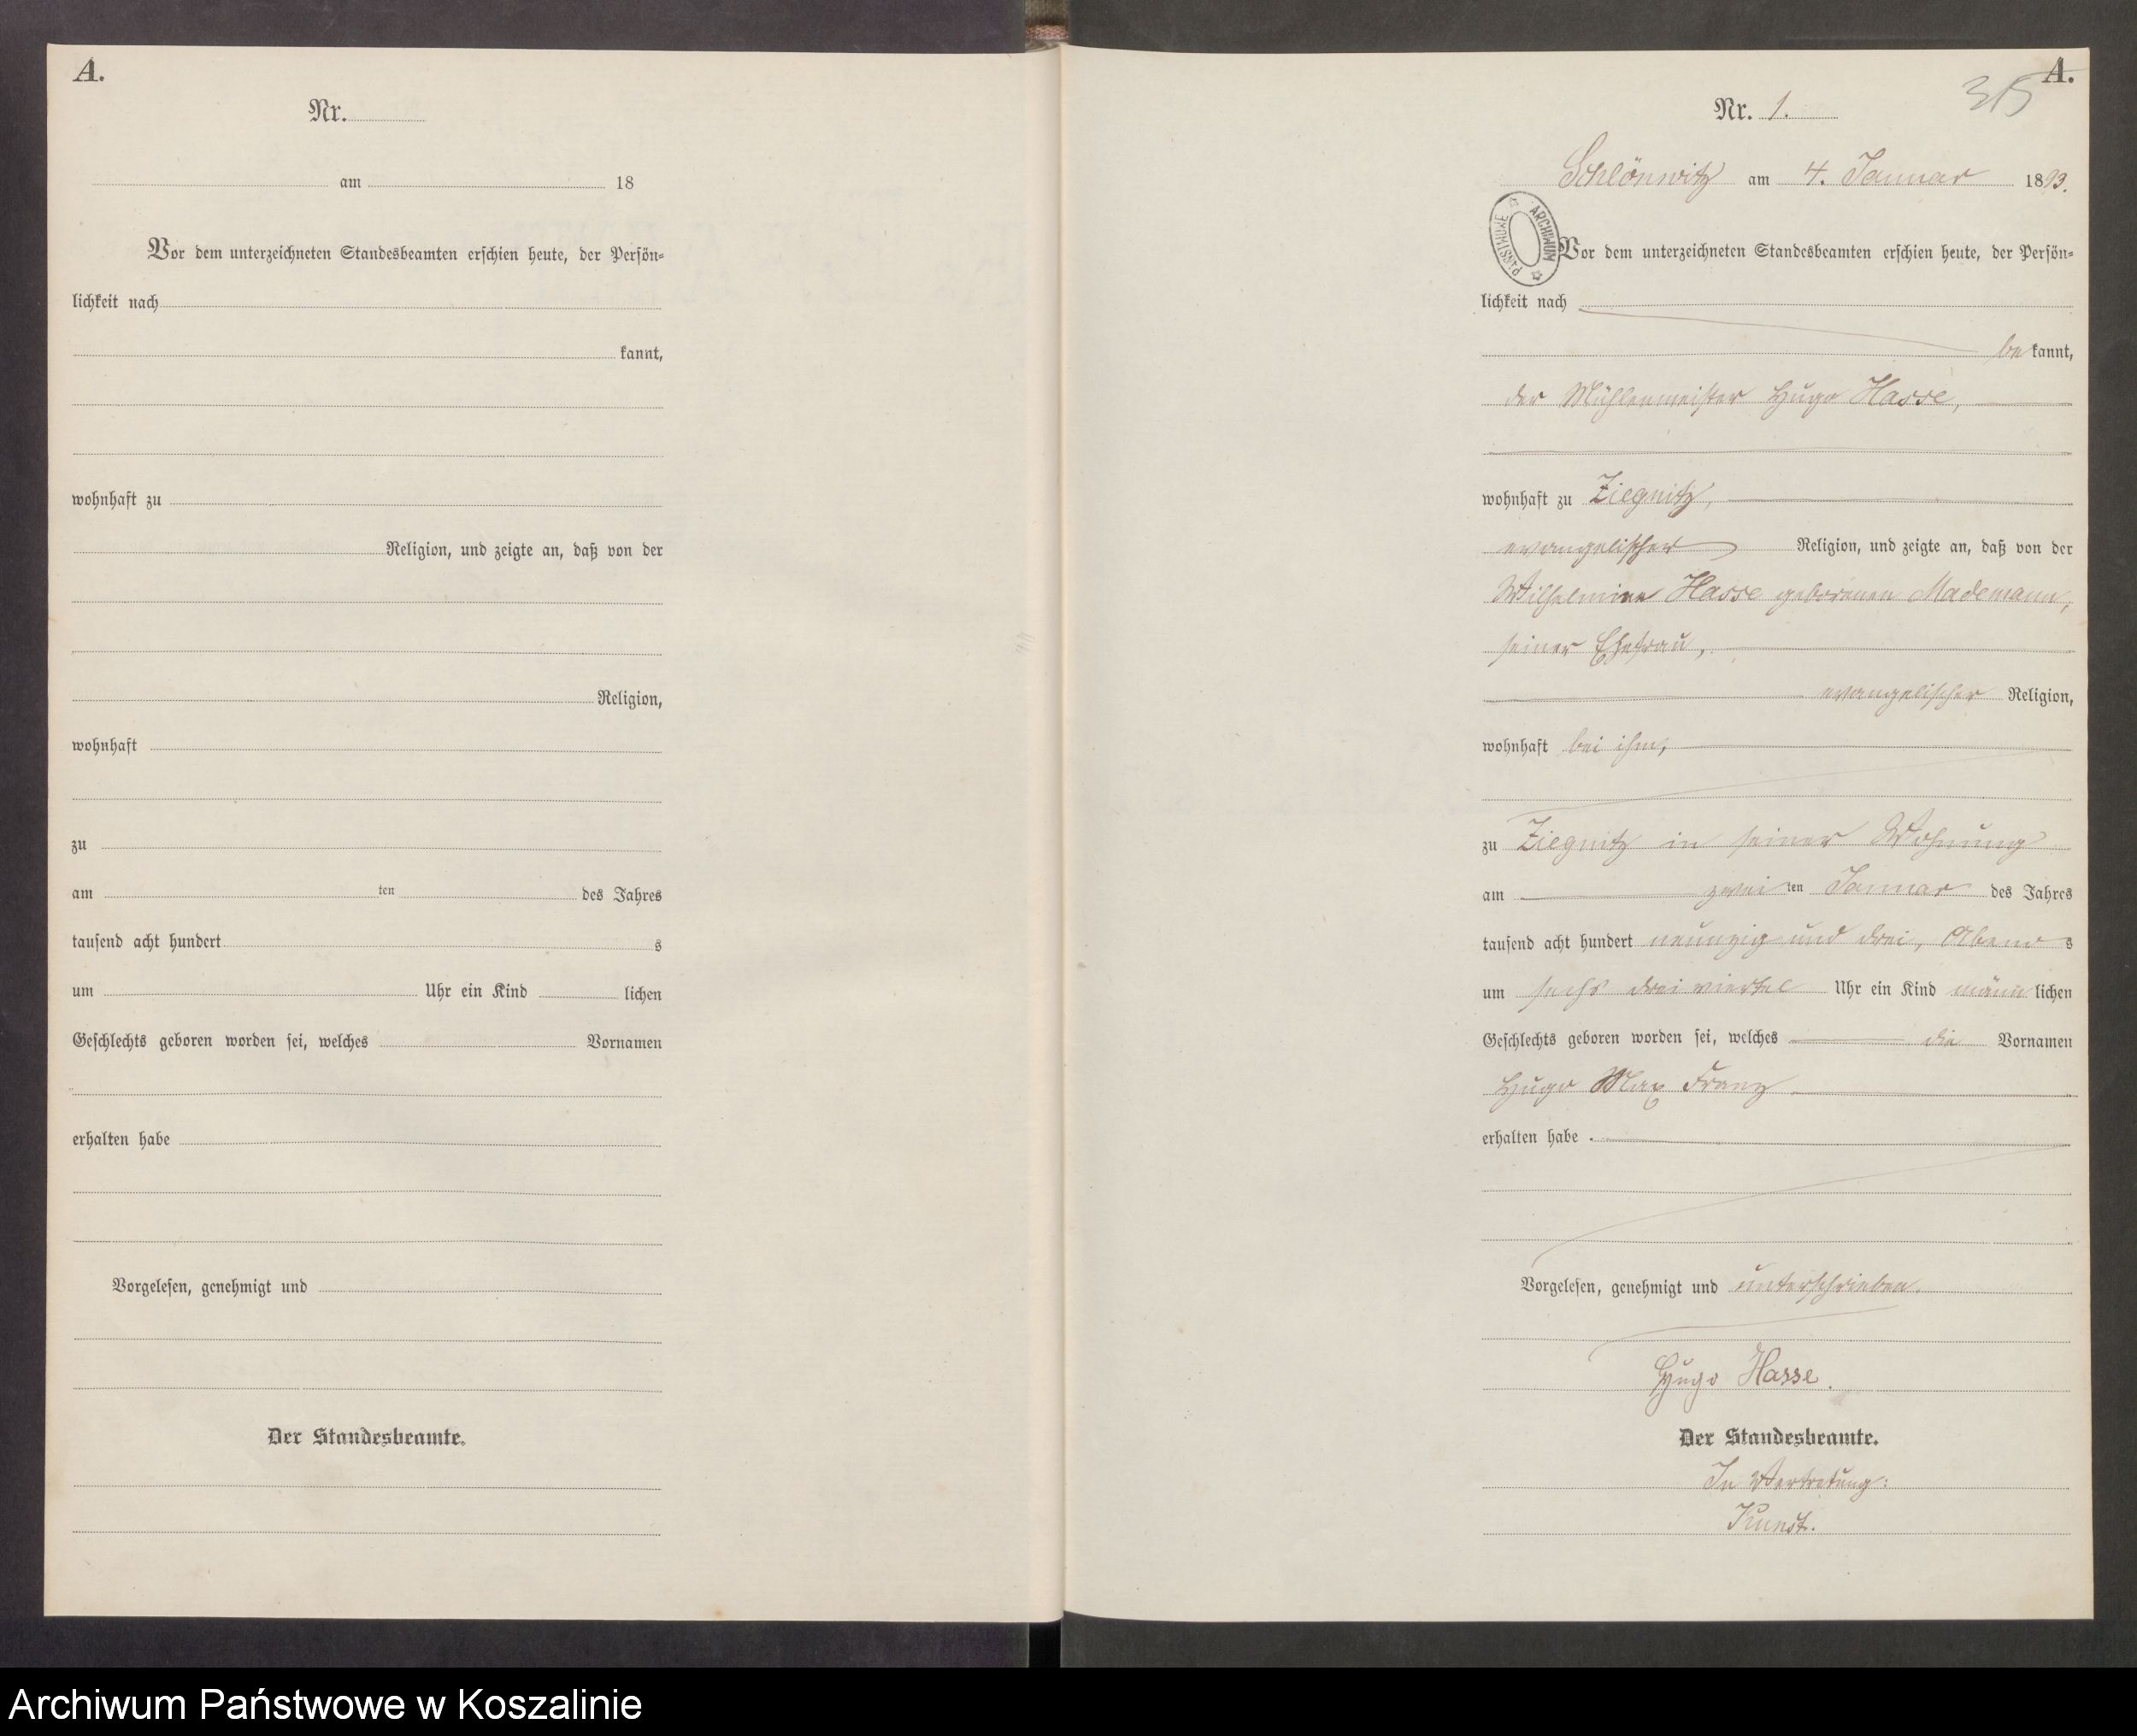 A.
Nr.
am 18
Vor dem unterzeichneten Standesbeamten erschien heute, der Persön=
lichkeit nach
kannt,
wohnhaft zu
Religion, und zeigte an, daß von der
Religion,
wohnhaft
zu
am ten des Jahres
tausend acht hundert s
um Uhr ein Kind lichen
Geschlechts geboren worden sei, welches Vornamen
erhalten habe
Vorgelesen, genehmigt und
Der Standesbeamte.
A.
315
Nr. 1.
Schlönwitz am 4. Januar 1893.
ARCHIWUM PAŃSTWOWE
Vor dem unterzeichneten Standesbeamten erschien heute, der Persön=
lichkeit nach
bekannt,
der Mühlenmeister Hugo Hasse,
wohnhaft zu Ziegnitz,
evangelischer Religion, und zeigte an, daß von der
Wilhelmine Hasse geborenen Mademann,
seiner Ehefrau,
evangelischer Religion,
wohnhaft bei ihm,
zu Ziegnitz in seiner Wohnung
am zweiten Januar des Jahres
tausend acht hundert neunzig und drei, Abends
um sechs drei viertel Uhr ein Kind männlichen
Geschlechts geboren worden sei, welches die Vornamen
Hugo Max Franz
erhalten habe.
Vorgelesen, genehmigt und unterschrieben.
Hugo Hasse.
Der Standesbeamte.
In Vertretung:
Kunst.
Archiwum Państwowe w Koszalinie